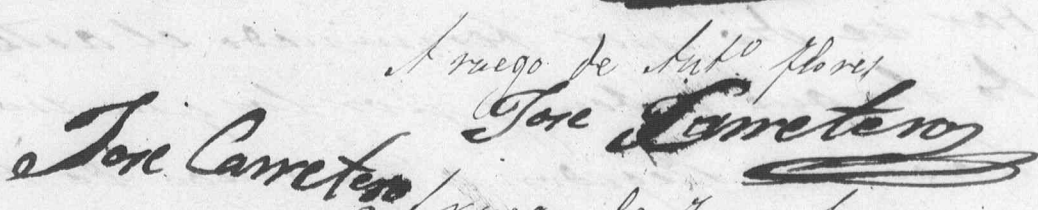 A ruego de Antº flores
Jose Carretero
Jose Carretero
ruego de